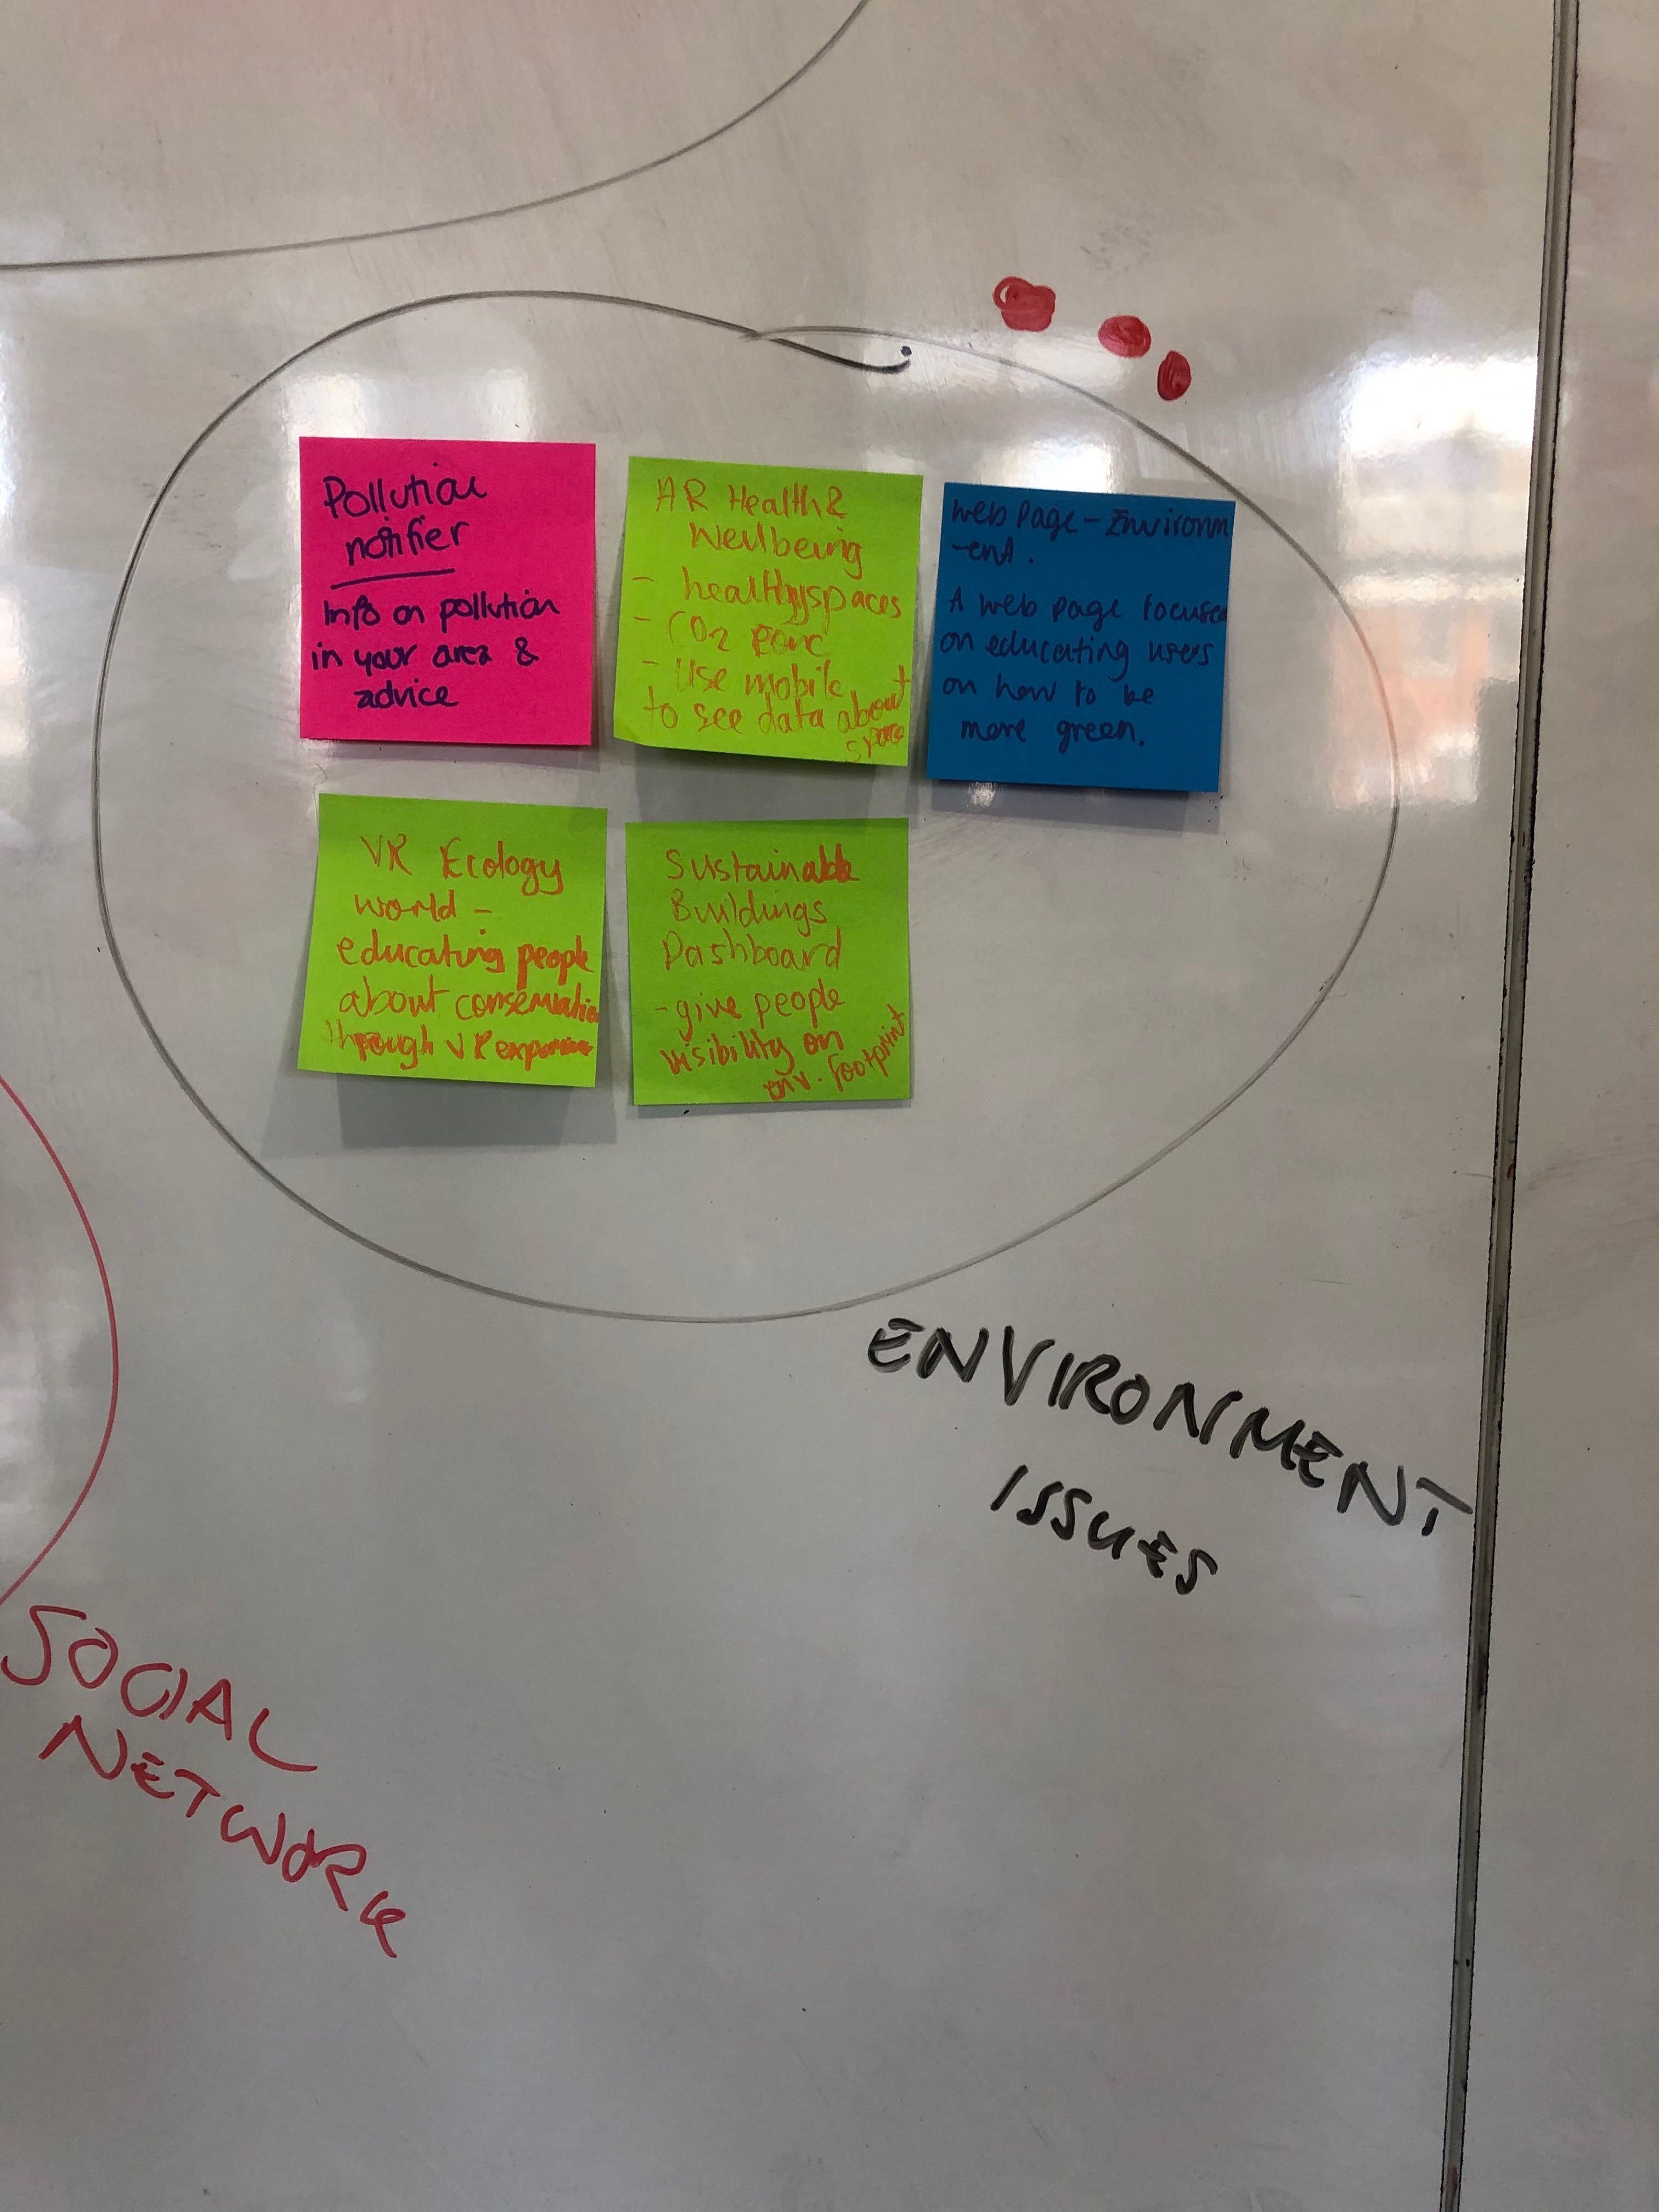 Pollution
notifier
Info on pollution
in your area &
advice
AR Health &
Wellbeing
- healthyspaces
- CO2
- Use mobile
to see data about
space
Web page - Environm
-ent.
A web page focused
on educating users
on how to be
more green.
VR Ecology
world -
educating people
about conservation
through VR experience
Sustainable
Buildings
Dashboard
- give people
visibility on
env. footprint
ENVIRONMENT
ISSUES
SOCIAL
NETWORK